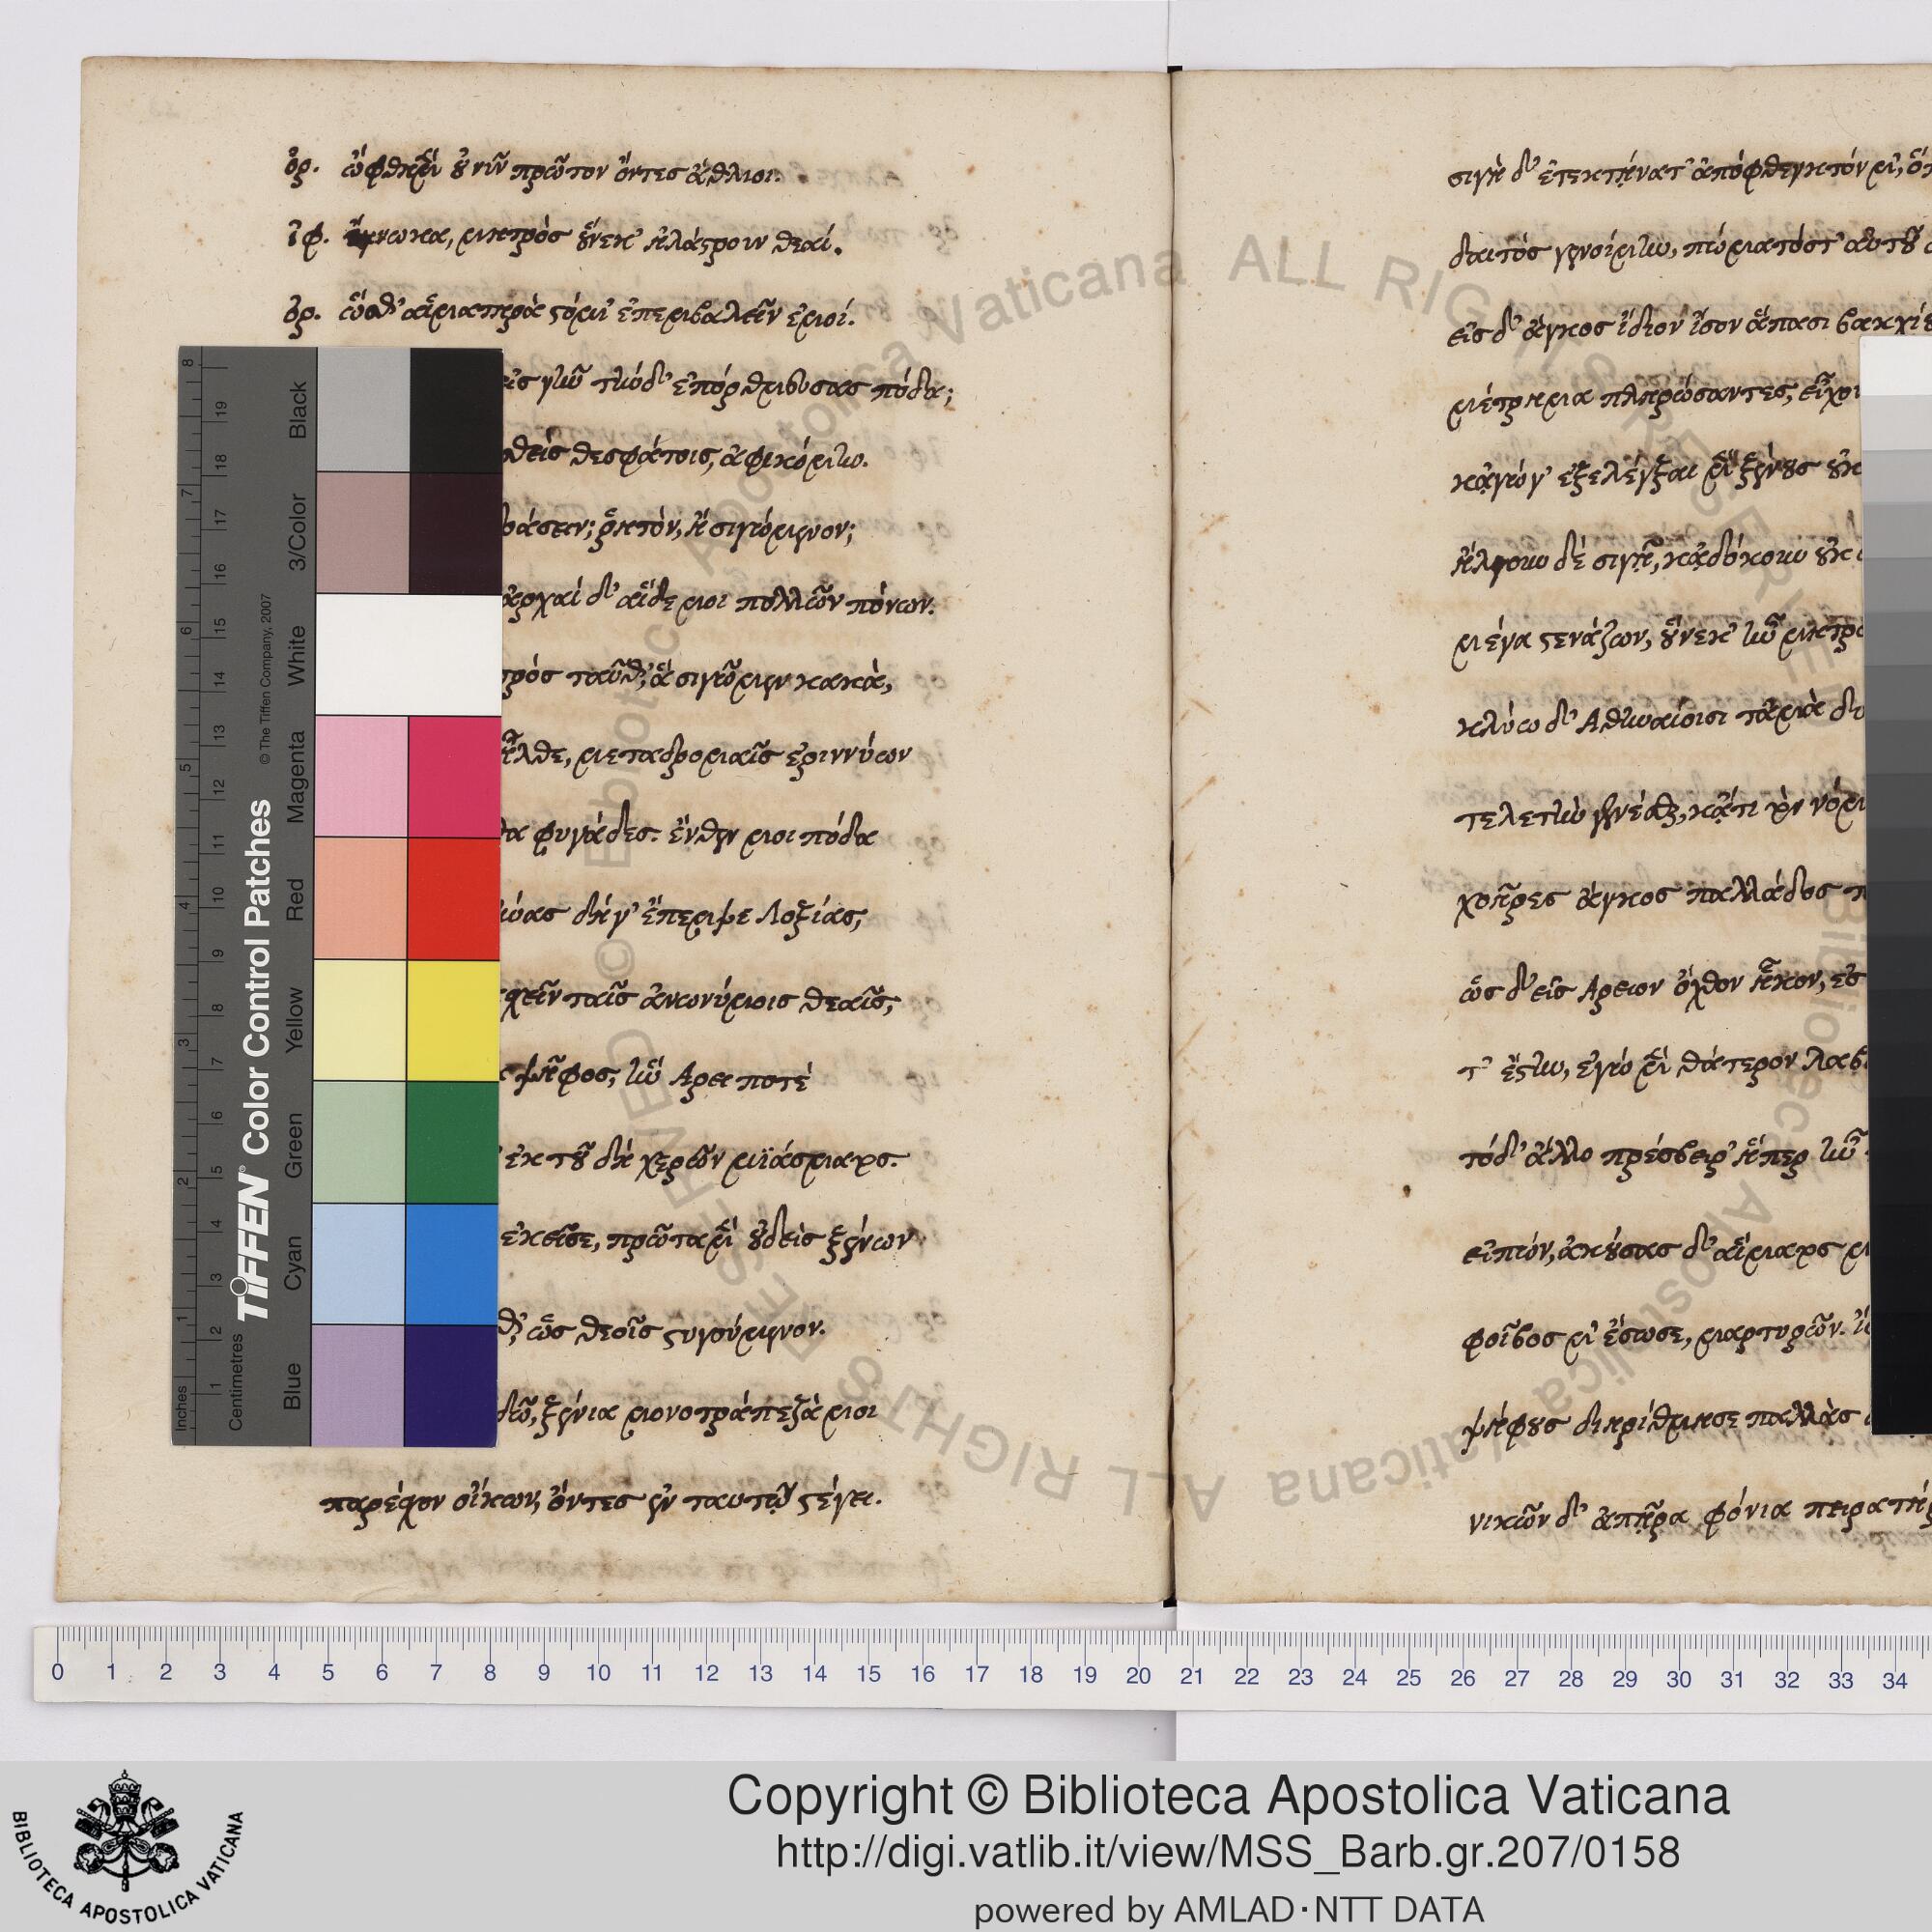 ὀρ. ὤφθημεν οὐ νῦν πρῶτον ὄντες ἄθλιοι.
ἰφ. ἔγνωκα, μητρὸς οὕνεκ' ἠλάστρουν θεαί.
ὀρ. ὥσθ' αἱματηρὰ στόμι' ἐπεμβαλεῖν ἐμοί.
γῆν τήνδ' ἐπόρθμευσας πόδα;
θεσφάτοις, ἀφικόμην.
δράσειν; ῥητὸν, ἢ σιγώμενον;
ἀρχαὶ δ' αἵδε μοι πολλῶν πόνων.
ταῦθ', ἃ σιγῶμεν κακὰ,
ἦλθε, μεταδρομαῖς ἐριννύων
φυγάδες. ἔνθεν μοι πόδα
δή γ' ἔπεμψε Λοξίας,
ταῖς ἀνωνύμοις θεαῖς,
ψῆφος, ἣν Άρει ποτὲ
ἐκ του δὴ χερῶν μιάσματος.
ἐκεῖσε, πρῶτα μ' οὐδεὶς ξένων
ὡς θεοῖς στυγούμενον.
ξένια μονοτράπεζά μοι
παρέσχον οἴκων, ὄντες ἐν ταυτῷ στέγει.
σιγῇ δ' ἐτεκτήναντ' ἀπόφθεγκτόν μ',
δαιτὸς γενοίμην, πώματόστ' αὐτοῦ
εἰς δ' ἄγγος ἴδιον ἴσον ἅπασι βακχίου
μέτρημα πληρώσαντες, εἶχον
κἀγώ γ' ἐξελέγξαι μὲν ξένους οὐκ
ἤλγουν δὲ σιγῇ, κἀδόκουν οὐκ
μέγα στενάζων, οὕνεκ' ἦν μητρὸς
κλύω δ' Ἀθηναίοισι τἀμὰ
τελετὴν γενέσθαι, κἄτι τὸν νόμον
χοῆρες ἄγγος παλλάδος
ὡς δ' εἰς Άρειον ὄχθον ἧκον, ἐς
τ' ἔστην, ἐγὼ μὲν θάτερον
τὸ δ' ἄλλο πρέσβειρ' ἥπερ ἦν
εἰπὼν, ἀκούσας δ' αἵματος
φοῖβος μ' ἔσωσε, μαρτυρῶν.
ψήφους διηρίθμησε παλλὰς
νικῶν δ' ἀπῆρα φόνια
8
7
6
5
4
3
2
1
19
18
17
16
15
14
13
12
11
10
9
8
7
6
5
4
3
2
1
Inches
Centimetres
TIFFEN® Color Control Patches
© The Tiffen Company, 2007
Black
3/Color
White
Magenta
Red
Yellow
Green
Cyan
Blue
0 1 2 3 4 5 6 7 8 9 10 11 12 13 14 15 16 17 18 19 20 21 22 23 24 25 26 27 28 29 30 31 32 33 34
BIBLIOTECA APOSTOLICA VATICANA
Copyright © Biblioteca Apostolica Vaticana
http://digi.vatlib.it/view/MSS_Barb.gr.207/0158
powered by AMLAD·NTT DATA